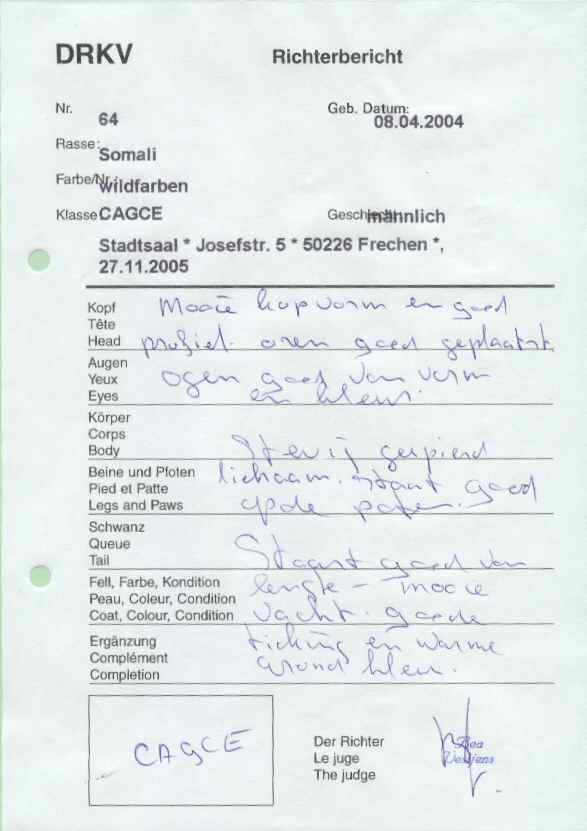 DRKV Richterbericht
Nr. 64 Geb. Datum: 08.04.2004
Rasse: Somali
Farbe/Nr.: wildfarben
Klasse CAGCE Geschlecht männlich
Stadtsaal * Josefstr. 5 * 50226 Frechen *,
27.11.2005
Kopf Mooie kopvorm en goed
Tête
Head profiel. oren goed geplaatst.
Augen
Yeux ogen goed van vorm
Eyes en kleur.
Körper
Corps
Body Stevig gespierd
Beine und Pfoten lichaam. staat goed
Pied et Patte
Legs and Paws op de poten.
Schwanz
Queue
Tail Staart goed van
Fell, Farbe, Kondition lengte – mooie
Peau, Coleur, Condition
Coat, Colour, Condition vacht. goede
Ergänzung ticking en warme
Complément
Completion grond kleur.
CAGCE
Der Richter
Le juge
The judge